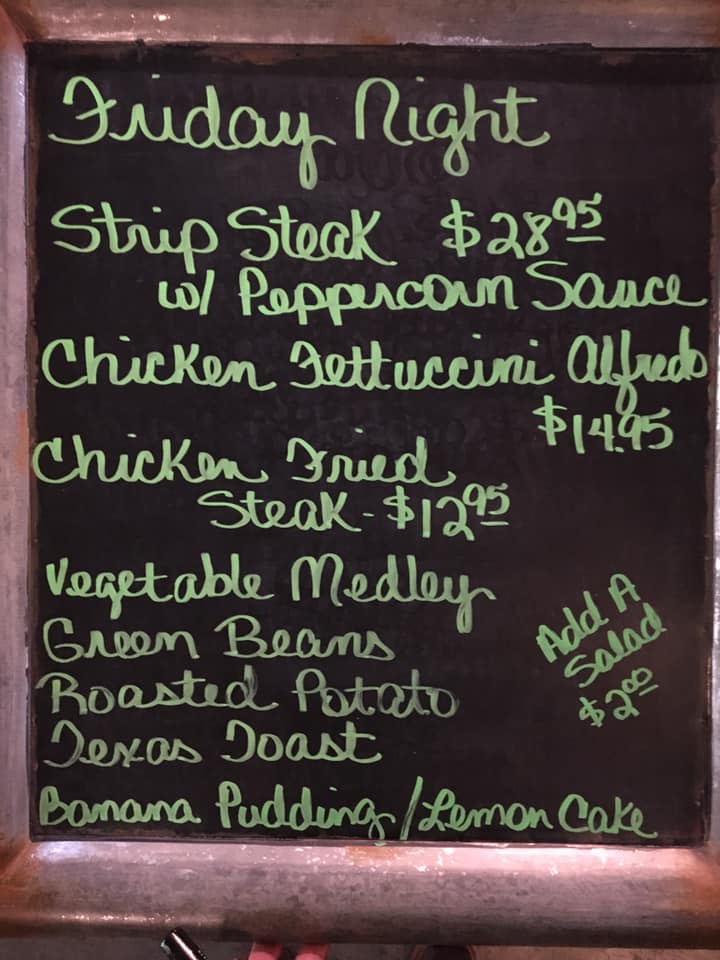 Friday Night
Strip Steak $28 95
w/ Peppercorn Sauce
Chicken Fettuccini Alfredo
$14.95
Chicken Fried
Steak - $12 95
Vegetable Medley
Green Beans
Roasted Potato
Texas Toast
Add A
Salad
$2 00
Banana Pudding / Lemon Cake